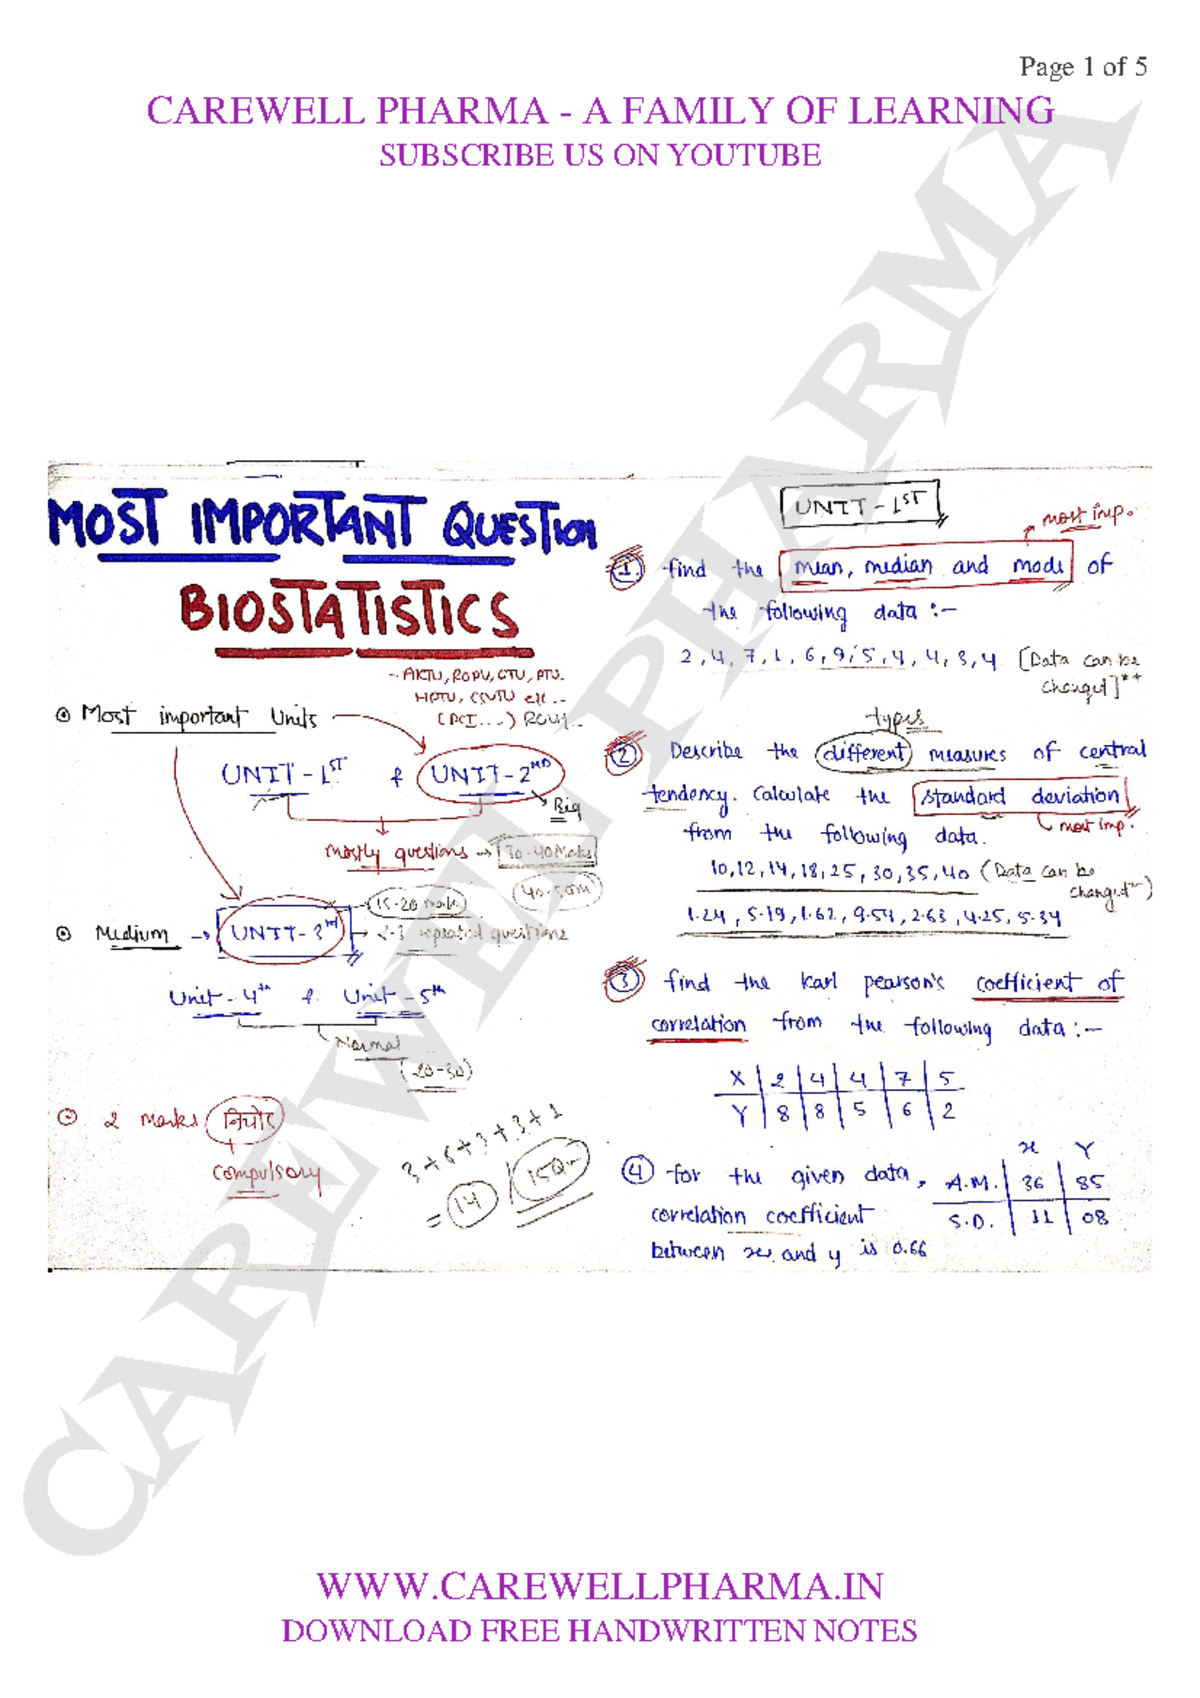 Page 1 of 5
CAREWELL PHARMA - A FAMILY OF LEARNING
SUBSCRIBE US ON YOUTUBE
MOST IMPORTANT QUESTION
BIOSTATISTICS
- AKTU, RGPV, GTU, PTU.
HPTU, CSVTU etc ...
(PCI ...)
Most important Units
UNIT - 1ST & UNIT - 2ND
Big
mostly questions → 30-40 Marks
40-50M
15-20 mark
Medium → UNIT - 3rd → 2-3 repeated questions
Unit - 4th & Unit - 5th
Normal
(20-30)
2 marks निचोड़
compulsory
3+6+3+3+1
= 14 / 15Q
UNIT - 1ST
most imp.
1. find the mean, median and mode of
the following data :-
2, 4, 7, 1, 6, 9, 5, 4, 4, 3, 4 [Data can be
changed]**
types
2 Describe the different measures of central
tendency. Calculate the standard deviation
most imp.
from the following data.
10, 12, 14, 18, 25, 30, 35, 40 (Data can be
changed)
1.24, 5.19, 1.62, 9.54, 2.63, 4.25, 5.34
3 find the karl pearson's coefficient of
correlation from the following data :-
X 2 4 4 7 5
Y 8 8 5 6 2
x Y
4 for the given data, A.M. 36 85
correlation coefficient S.D. 11 08
between x and y is 0.66
CAREWELL PHARMA
WWW.CAREWELLPHARMA.IN
DOWNLOAD FREE HANDWRITTEN NOTES